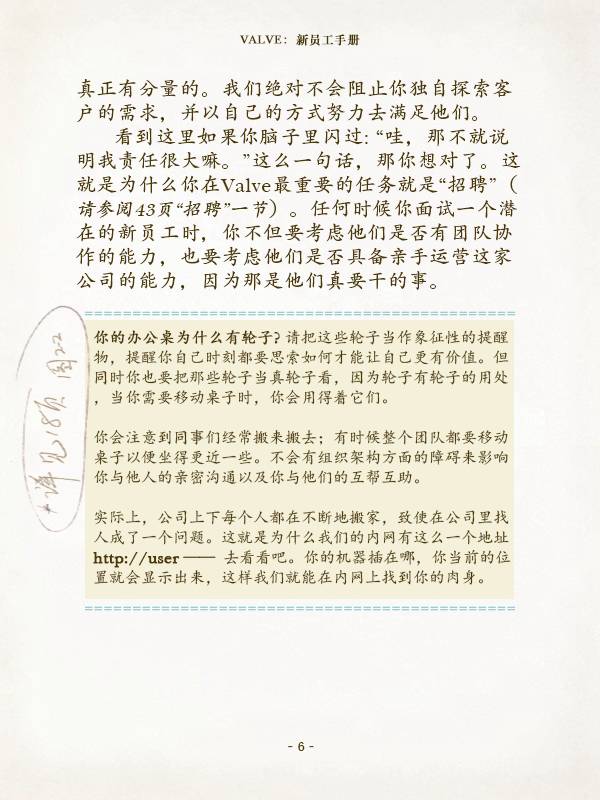 VALVE：新员工手册
真正有分量的。我们绝对不会阻止你独自探索客
户的需求，并以自己的方式努力去满足他们。
看到这里如果你脑子里闪过：“哇，那不就说
明我责任很大嘛。”这么一句话，那你想对了。这
就是为什么你在Valve最重要的任务就是“招聘”（
请参阅43页“招聘”一节）。任何时候你面试一个潜
在的新员工时，你不但要考虑他们是否有团队协
作的能力，也要考虑他们是否具备亲手运营这家
公司的能力，因为那是他们真要干的事。
你的办公桌为什么有轮子？请把这些轮子当作象征性的提醒
物，提醒你自己时刻都要思索如何才能让自己更有价值。但
同时你也要把那些轮子当真轮子看，因为轮子有轮子的用处
，当你需要移动桌子时，你会用得着它们。
你会注意到同事们经常搬来搬去；有时候整个团队都要移动
桌子以便坐得更近一些。不会有组织架构方面的障碍来影响
你与他人的亲密沟通以及你与他们的互帮互助。
实际上，公司上下每个人都在不断地搬家，致使在公司里找
人成了一个问题。这就是为什么我们的内网有这么一个地址
http://user —— 去看看吧。你的机器插在哪，你当前的位
置就会显示出来，这样我们就能在内网上找到你的肉身。
*详见18页 图2-2
- 6 -